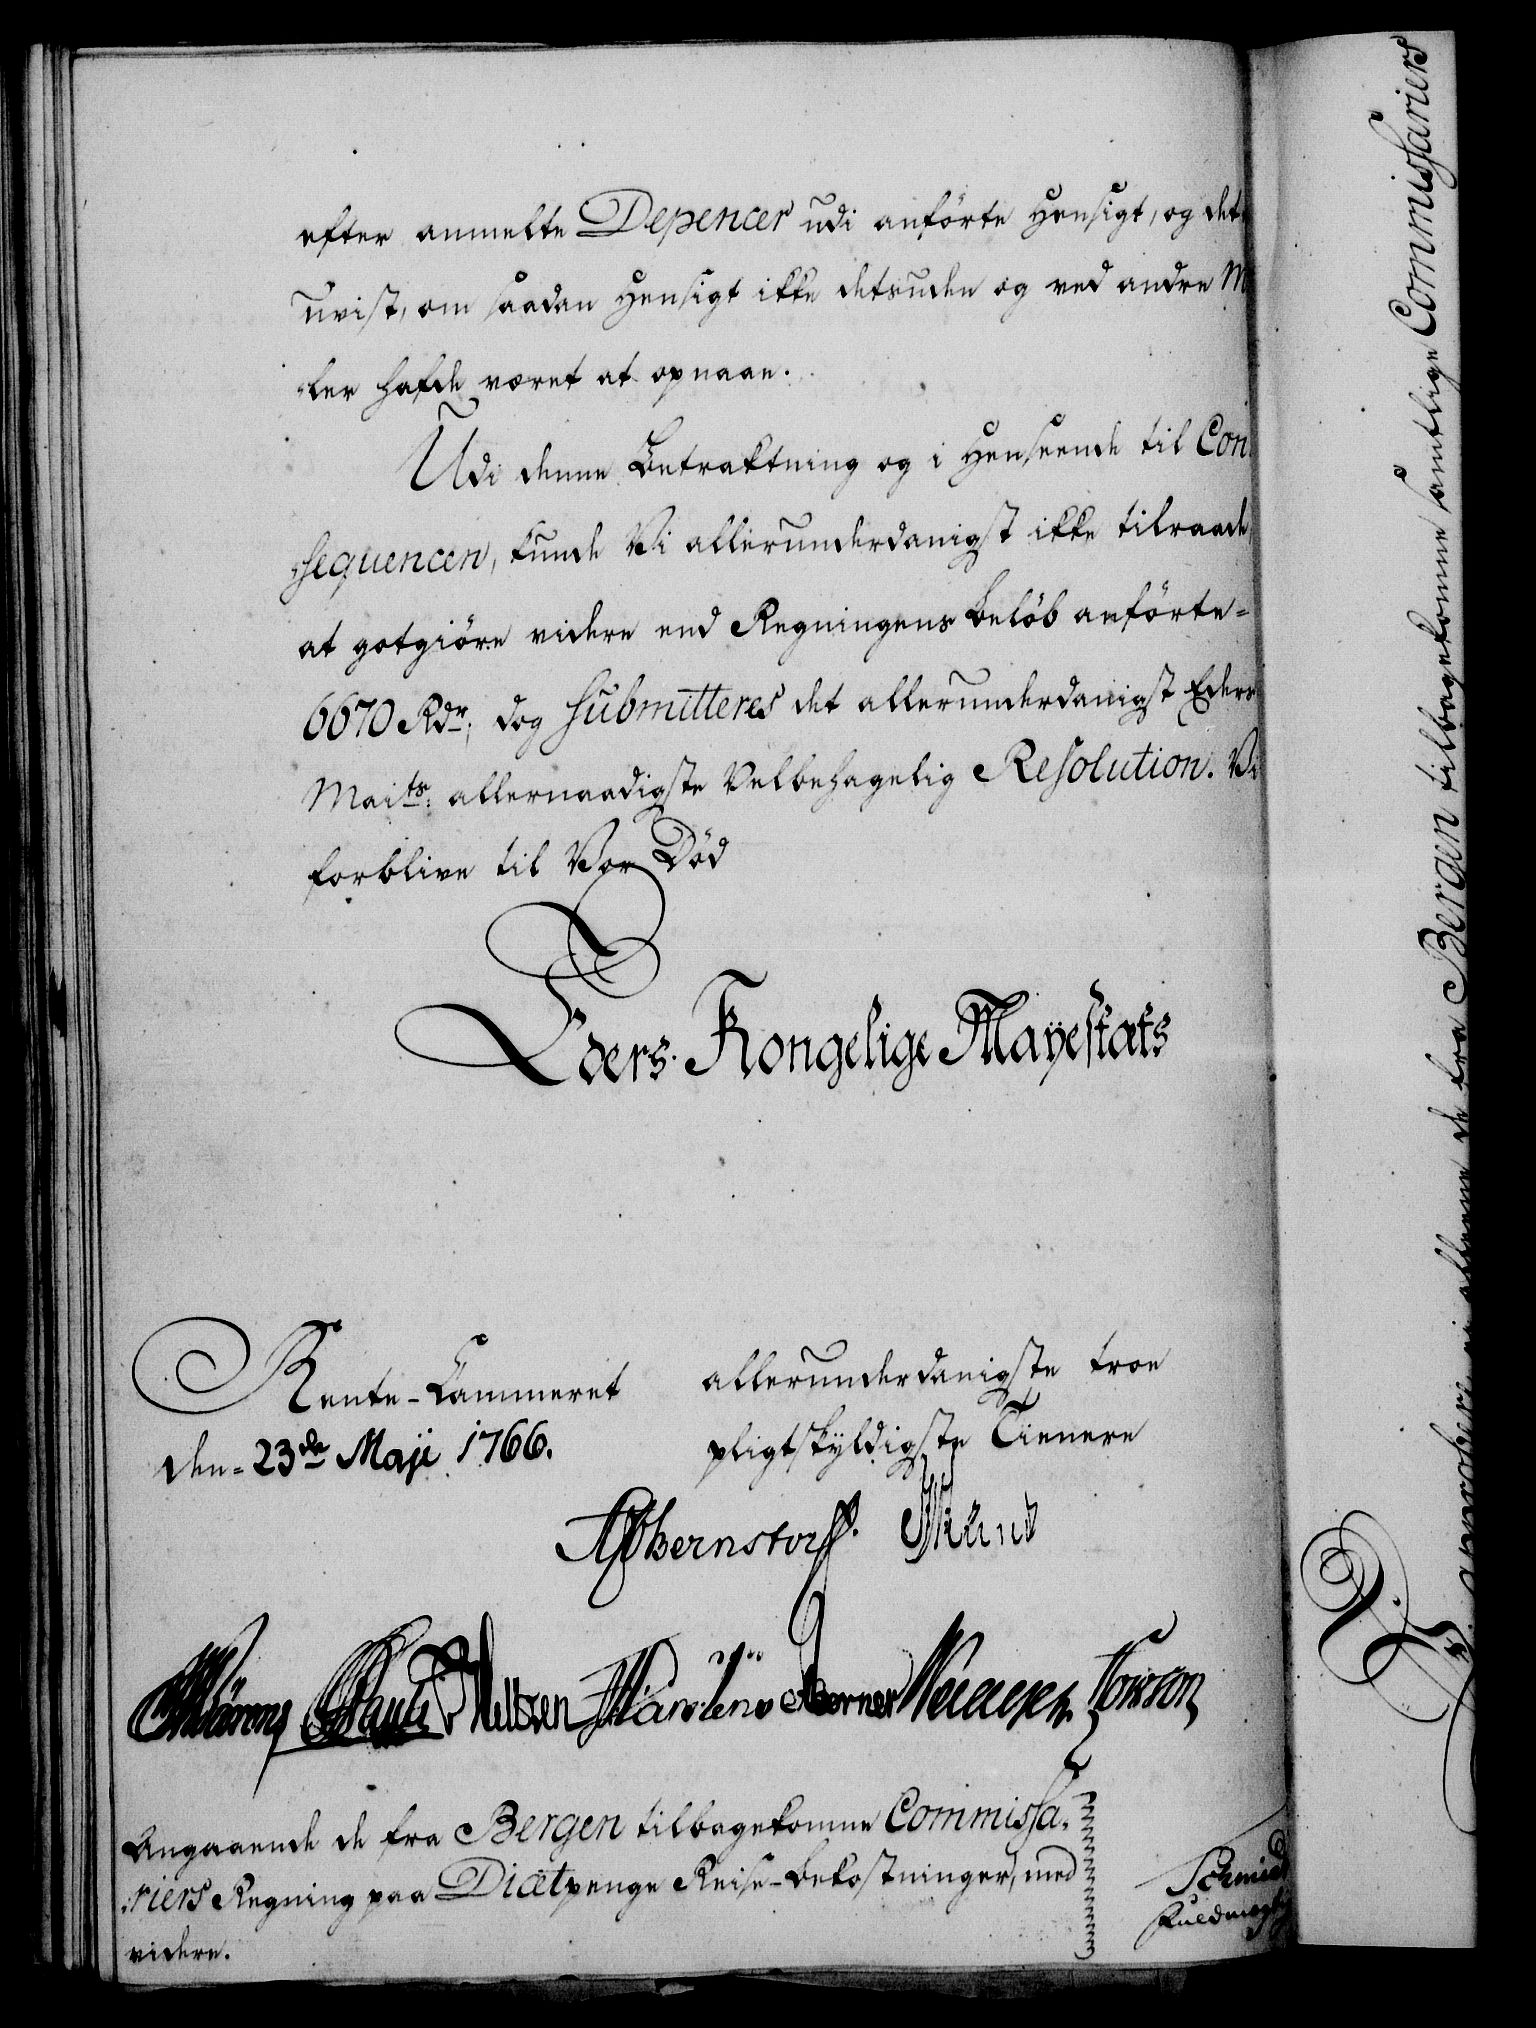 efter anmelte Depencer udi anförte Hensigt, og det
uvist, om saadan Hensigt ikke desuden og ved andre M
ler hafde været at opnaae.
Udi denne Betraktning og i Henseende til Con
seqvencen, kunde Vi allerunderdanigst ikke tilraade,
at gotgiöre videre end Regningens Belöb anförte-
6670 Rdr; dog submitteres det allerunderdanigst Eders
Maits: allernaadigste Velbehagelig Resolution. Vi
forblive til Vor Död
Eders Kongelige Mayestæts
Rente-Cammeret
den 23de Maji 1766.
allerunderdanigste troe
pligtskyldigste Tienere
Bernstorff.
Pauli
Angaaende de fra Bergen tilbagekomne Commissa-
riers Regning paa Diætpenge Reise-Bekostninger, med
videre.
Schmidt
Fuldmægtig
Vi approbere
de fra Bergen tilbagekomne samtlige Commissariers